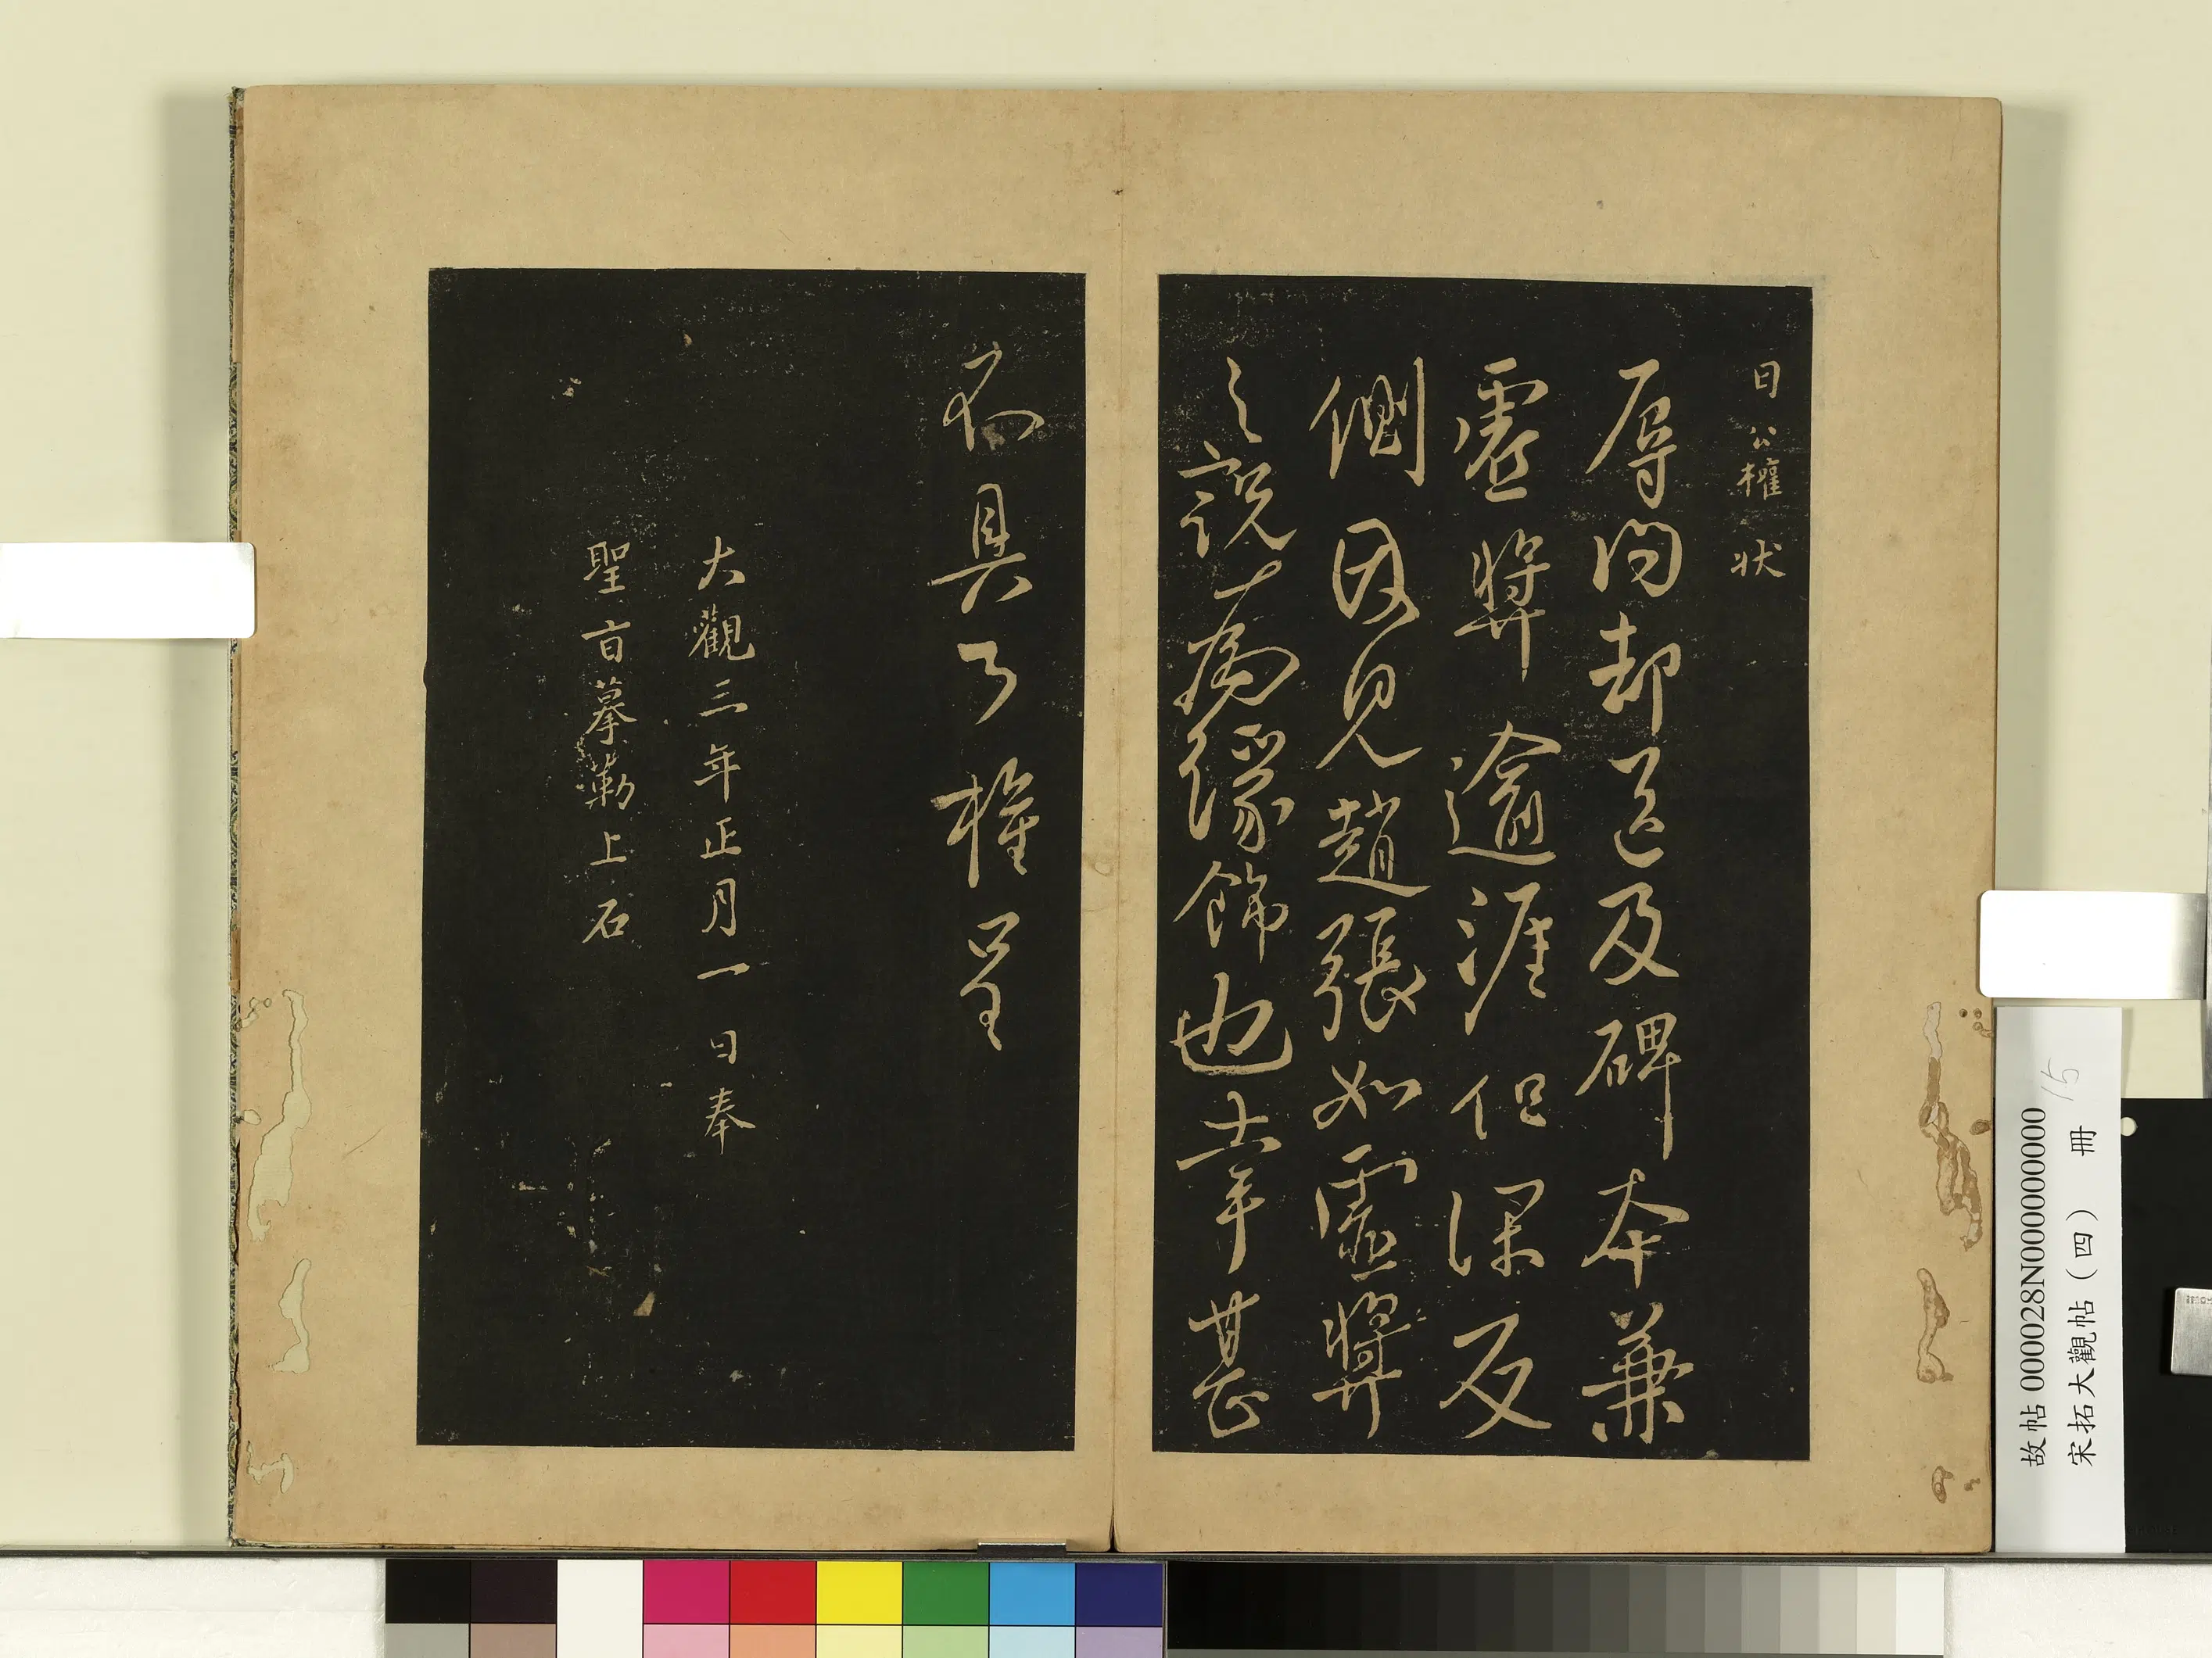 日公權狀
辱問却送及碑本兼
虛奬逾涯但深反
側因見趙張如虛奬
之說一為緣飾也幸甚
不具公權呈
大觀三年正月一日奉
聖旨摹勒上石
故帖000028N000000000
宋拓大觀帖(四) 冊
15